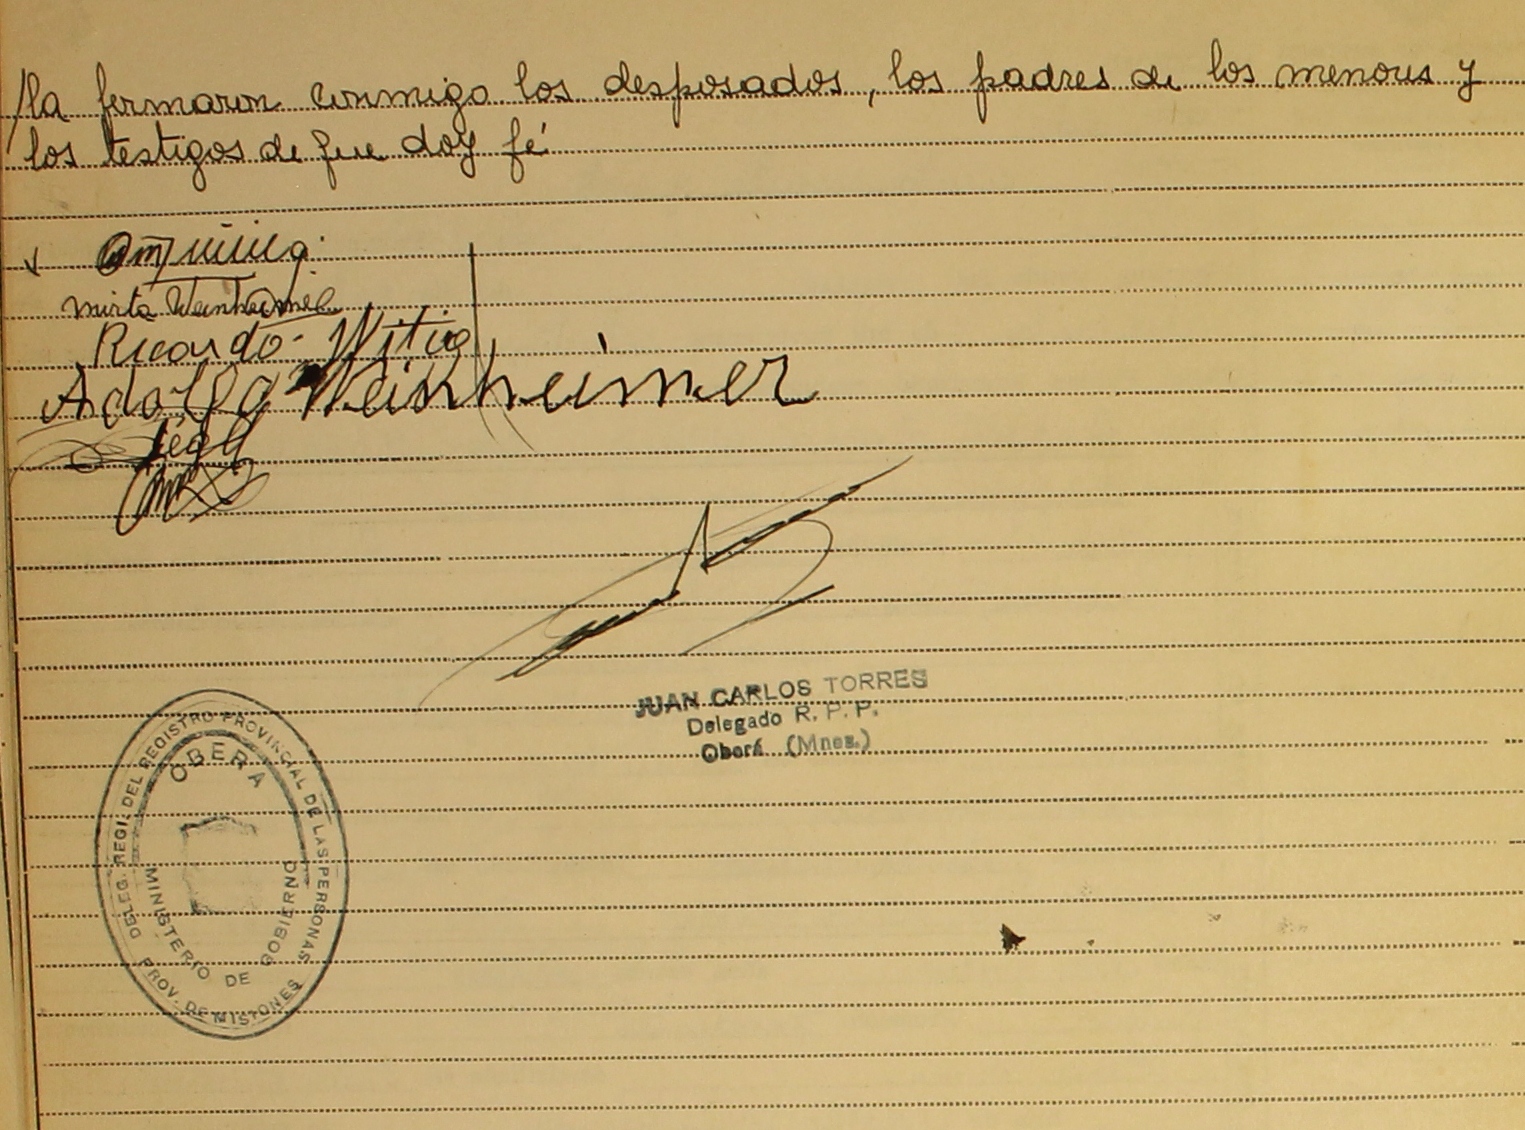 /la firmaron conmigo los desposados, los padres de los menores y
los testigos de que doy fé
Mirta Weinheimer
Ricardo Witig
Adolfo Weinheimer
JUAN CARLOS TORRES
Delegado R. P. P.
Oberá (Mnes.)
DELEG. REGI. DEL REGISTRO PROVINCIAL DE LAS PERSONAS
OBERA
MINISTERIO DE GOBIERNO
PROV. DE MISIONES